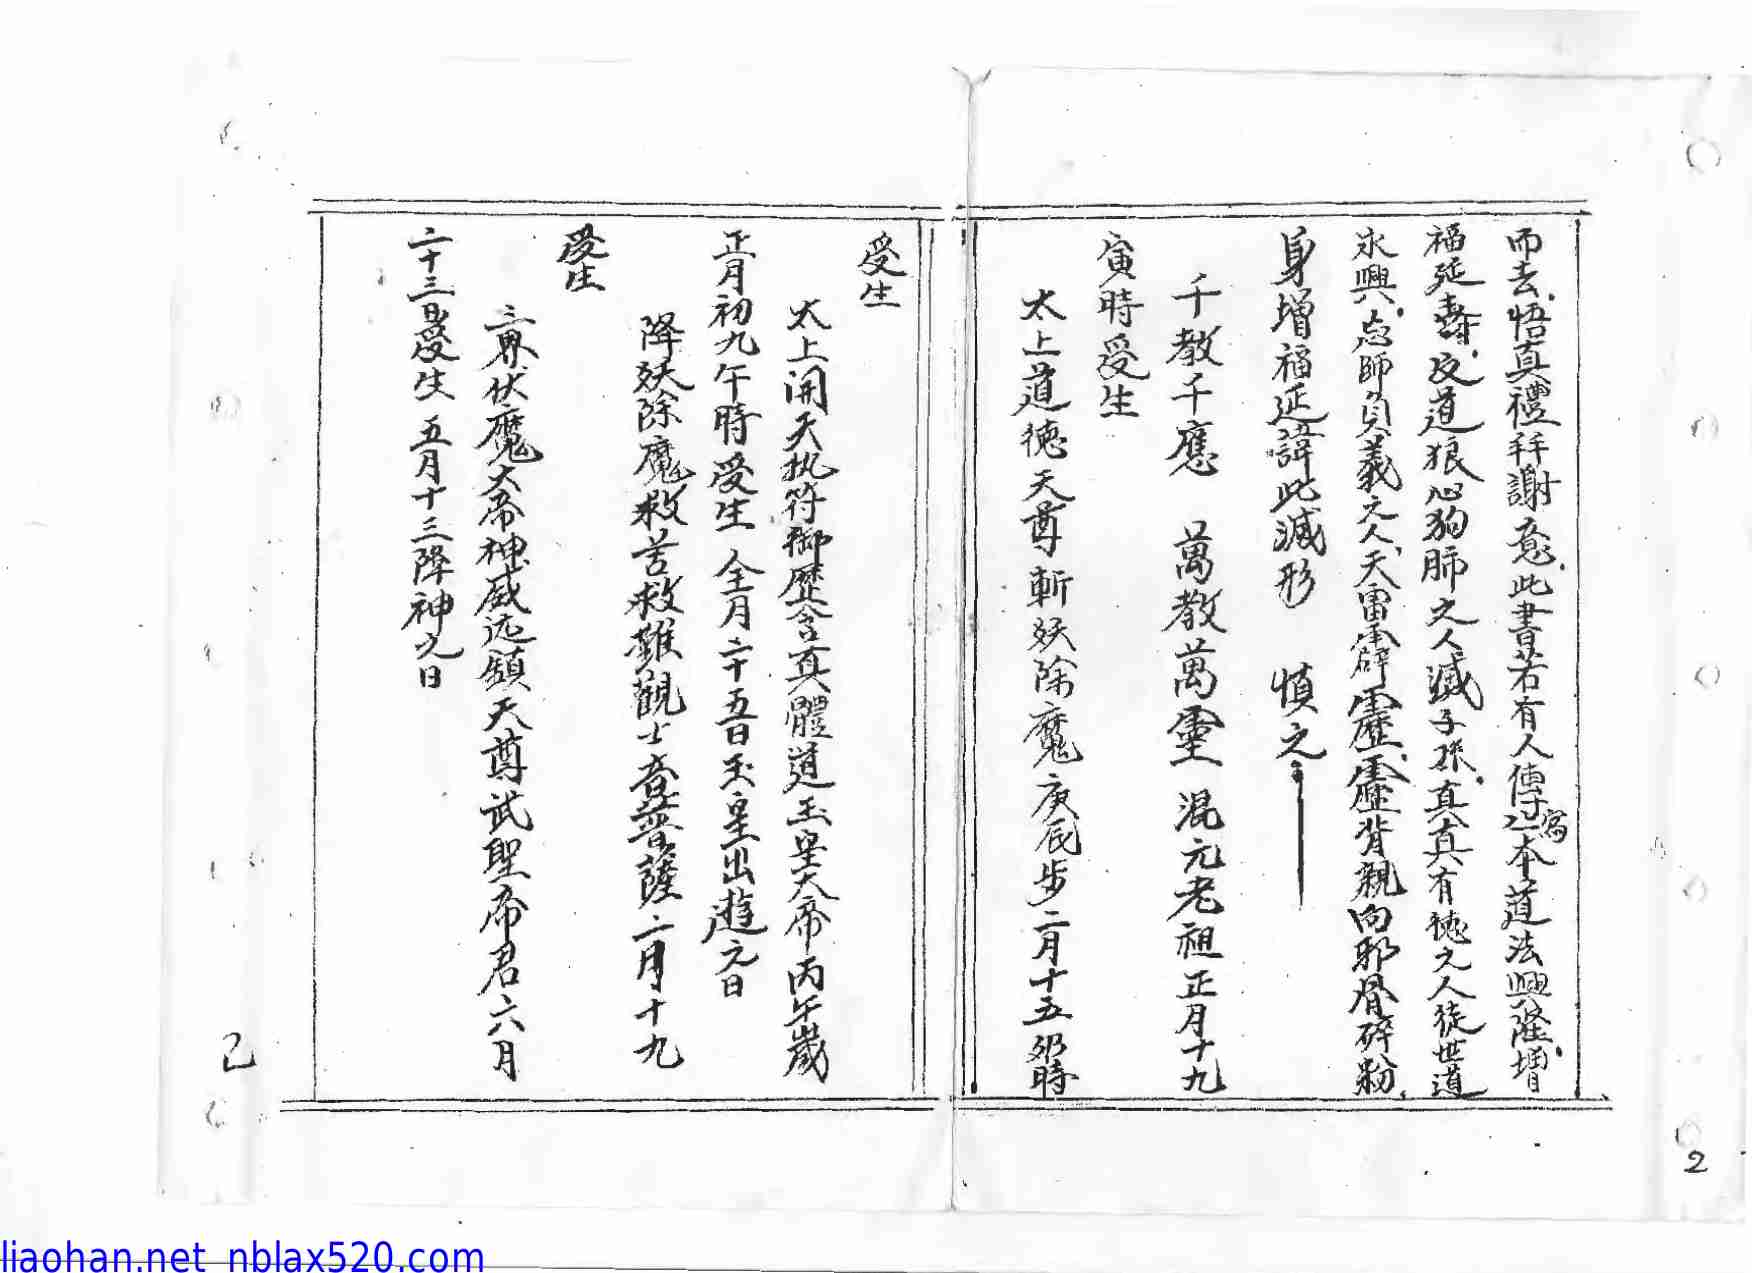 而去.悟真禮拜謝意.此書若有人傳寫一本道法興隆.增
福延壽.反道狼心狗肺之人滅子孫.真真有德之人徒世道
永興.忘師負義之人天雷霹靂靂背親向邪骨碎粉.
身增福延諱此滅形 慎之
千教千應 萬教萬靈 混元老祖正月十九
寅時受生
太上道德天尊斬妖除魔庚辰步二月十五卯時
受生
太上開天执符御歷含真體道玉皇大帝丙午歲
正月初九午時受生 全月二十五日玉皇出遊之日
降妖除魔救苦救難觀士音菩薩二月十九
受生
三界伏魔大帝神威远鎮天尊武聖帝君六月
二十三日受生 五月十三降神之日
2
2
liaohan.net nblax520.com